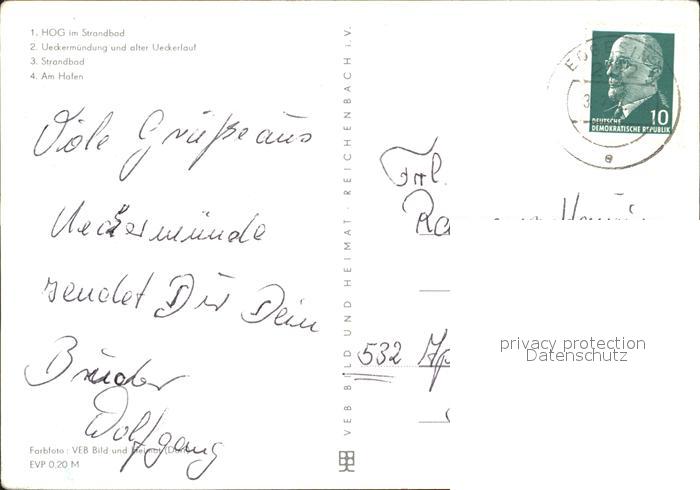 1. HOG im Strandbad
2. Ueckermündung und alter Ueckerlauf
3. Strandbad
4. Am Hafen
Viele Grüße aus
Ueckermünde
sendet Dir Dein
Bruder
Wolfgang
Farbfoto : VEB Bild und Heimat
EVP 0,20 M
VEB BILD UND HEIMAT · REICHENBACH i. V.
10
DEUTSCHE
DEMOKRATISCHE REPUBLIK
a
Frl.
532
privacy protection
Datenschutz